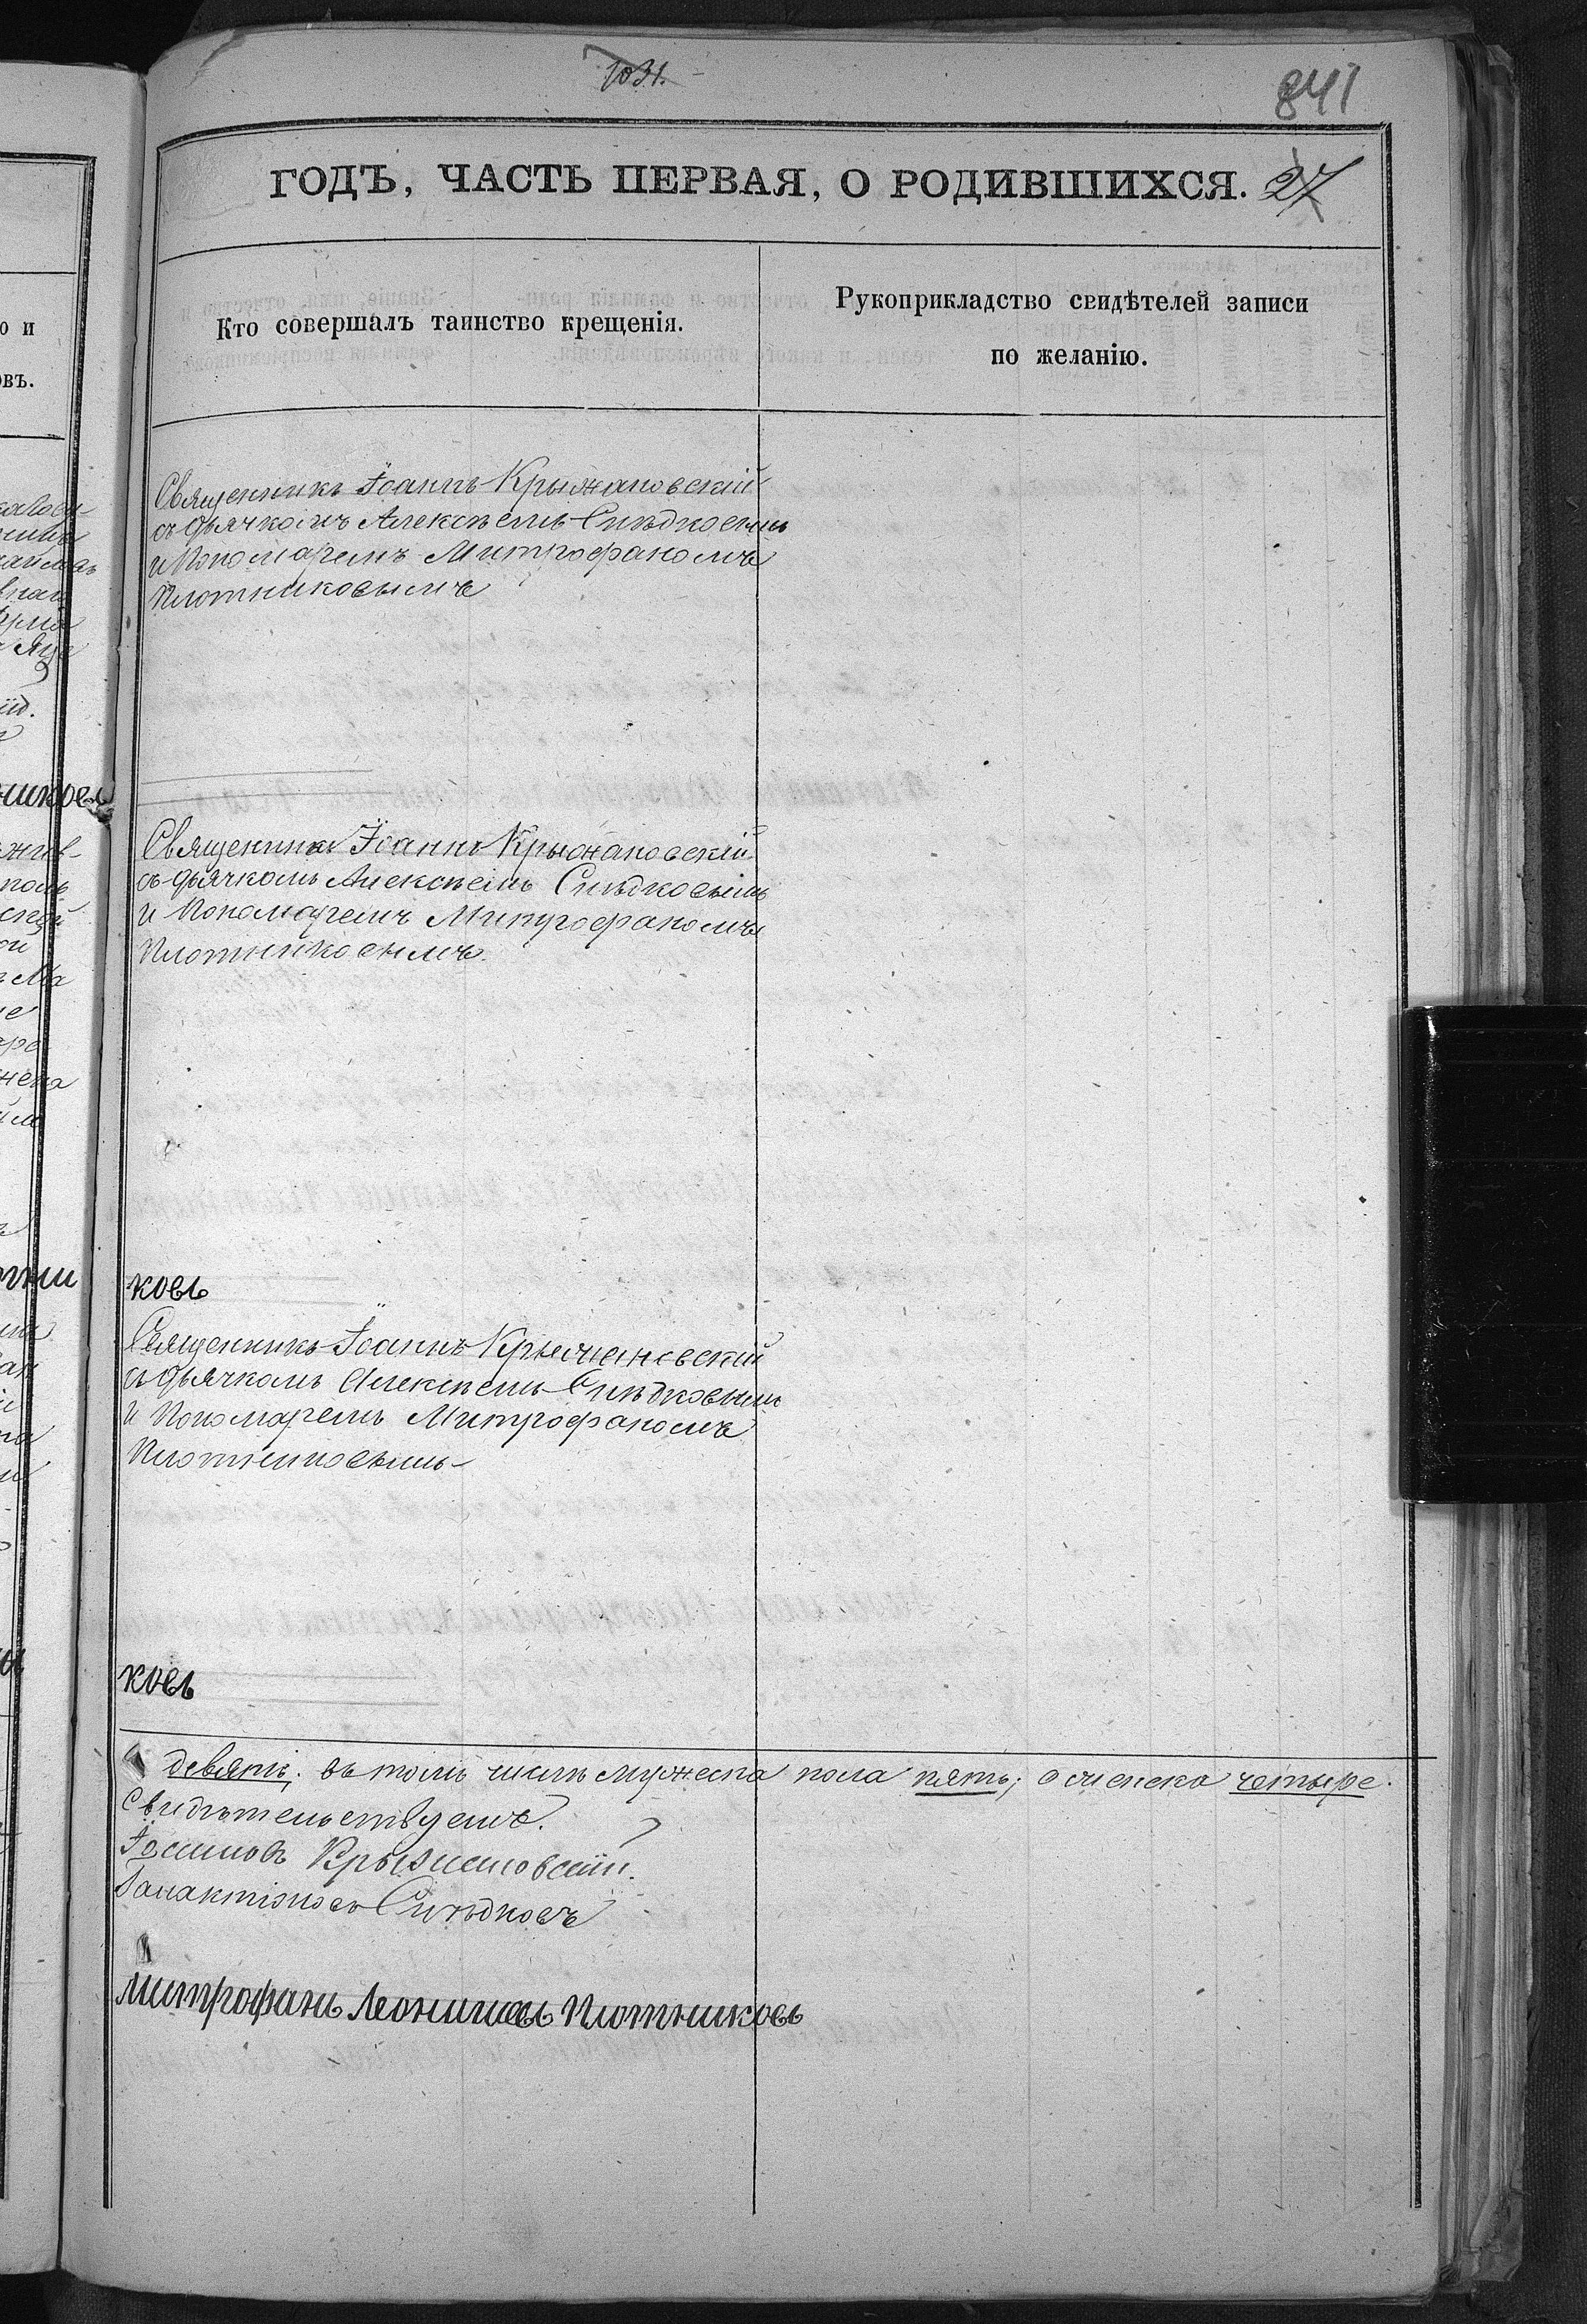 1031.
841
ГОДЪ, ЧАСТЬ ПЕРВАЯ, О РОДИВШИХСЯ. 27
Кто совершалъ таинство крещенія.
Рукоприкладство свидѣтелей записи
по желанію.
Священникъ Іоаннъ Крыжановскій
съ дьячкомъ Алексѣемъ Снѣдковымъ
и Пономаремъ Митрофаномъ
Плотниковымъ
Священникъ Іоаннъ Крыжановскій
съ дьячкомъ Алексѣемъ Снѣдковымъ
и Пономаремъ Митрофаномъ
Плотниковымъ.
ковъ
Священникъ Іоаннъ Крыжановскій
съ дьячкомъ Алексѣемъ Снѣдковымъ
и Пономаремъ Митрофаномъ
Плотниковымъ
ковъ
девять; въ томъ числѣ мужеска пола пять, а женска четыре.
Свидѣтельствуемъ.
Крыжановскій.
Снѣдковъ
Митрофанъ Плотниковъ